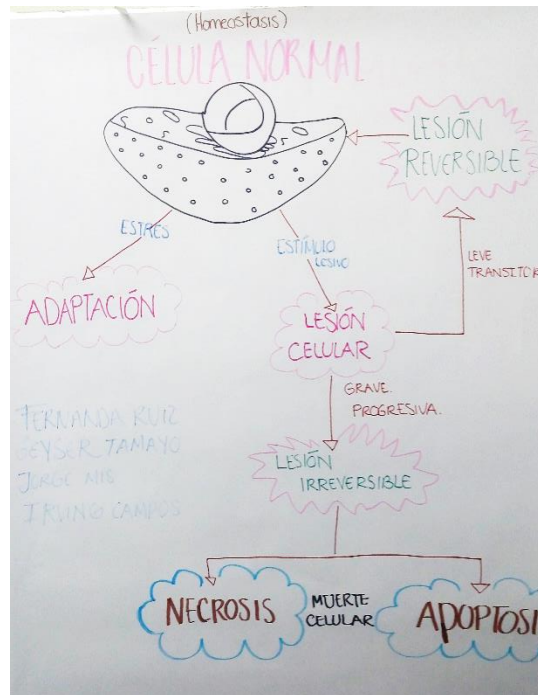 (Homeostasis)
CÉLULA NORMAL
LESIÓN
REVERSIBLE
ESTRÉS
ESTÍMULO
LESIVO
LEVE
TRANSITOR
ADAPTACIÓN
LESIÓN
CELULAR
GRAVE.
PROGRESIVA.
FERNANDA RUIZ
GEYSER TAMAYO
JORGE
IRVING CAMPOS
LESIÓN
IRREVERSIBLE
NECROSIS
MUERTE
CELULAR
APOPTOSI